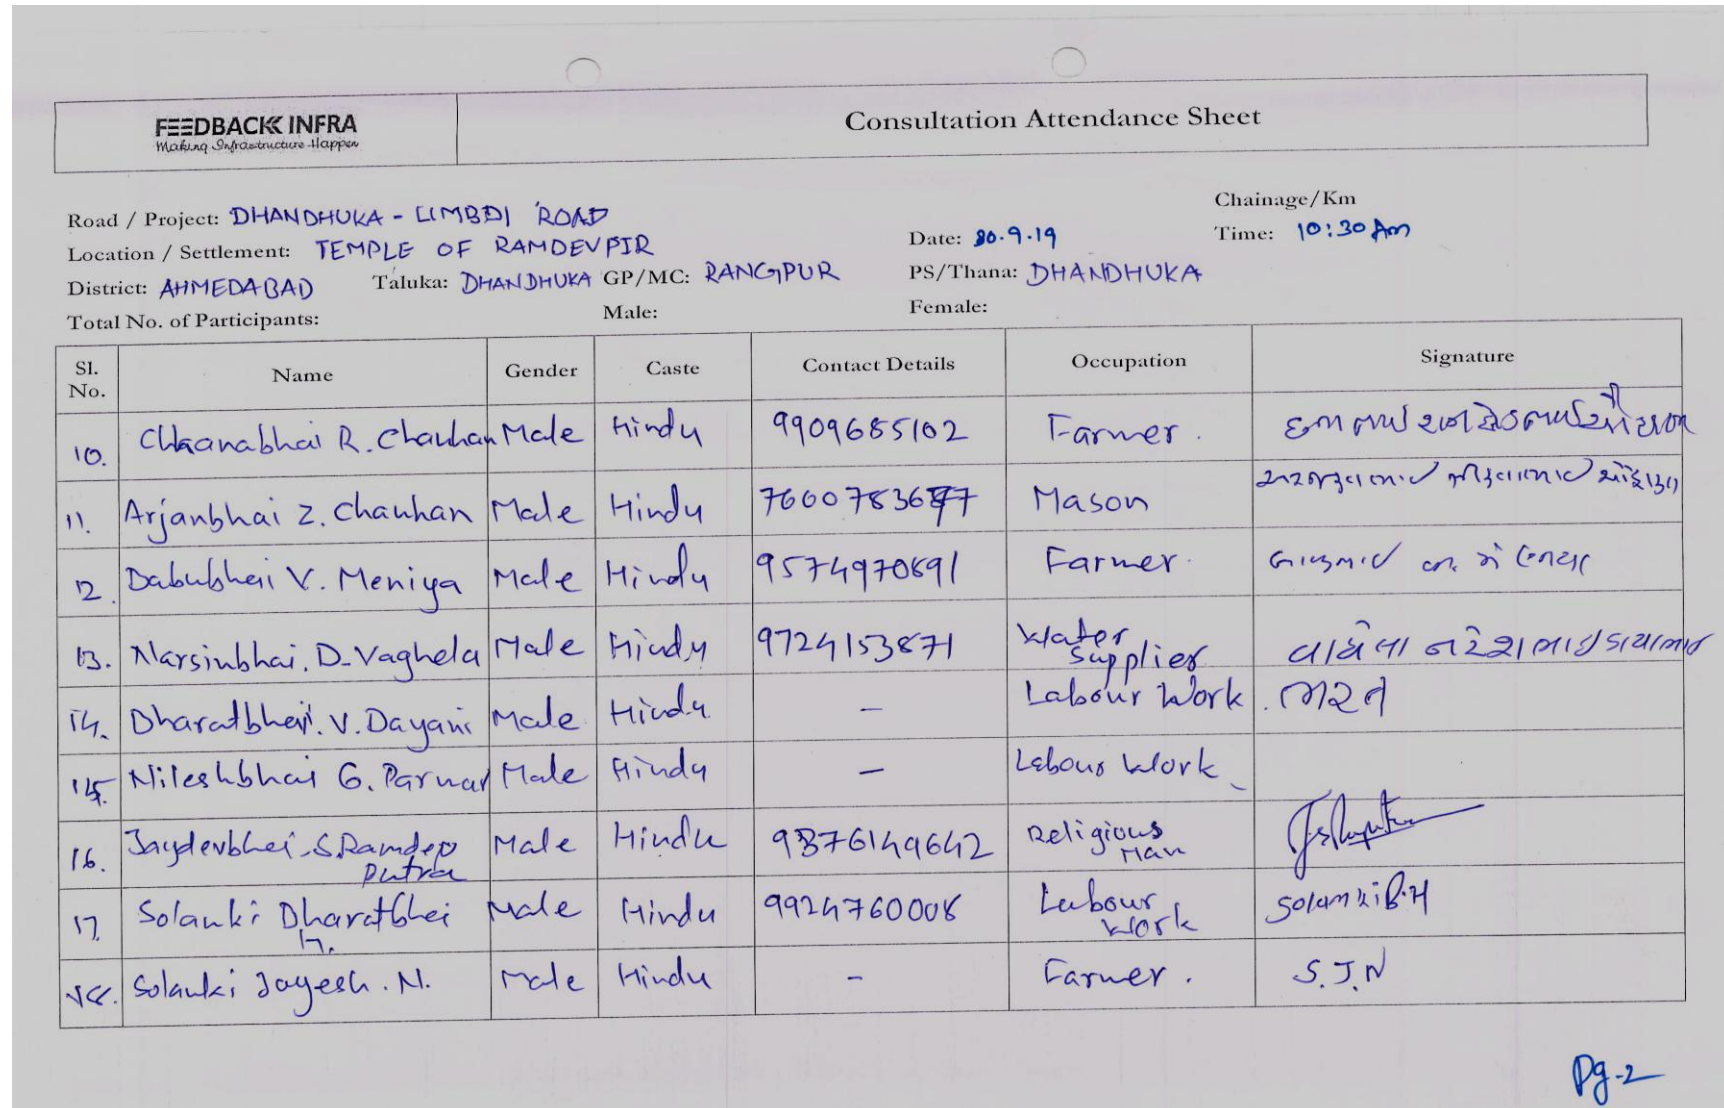 FEEDBACK INFRA
Making Infrastructure Happen
Consultation Attendance Sheet
Chainage/Km
Road / Project: DHANDHUKA - LIMBDI ROAD
Location / Settlement: TEMPLE OF RAMDEVPIR Date: 30.9.19 Time: 10:30 Am
District: AHMEDABAD Taluka: DHANDHUKA GP/MC: RANGPUR PS/Thana: DHANDHUKA
Total No. of Participants: Male: Female:
Sl. No. Name Gender Caste Contact Details Occupation Signature
10. Chhanabhai R. Chauhan Male Hindu 9909685102 Farmer.
11. Arjanbhai Z. Chauhan Male Hindu Mason
12. Babubhai V. Meniya Male Hindu 9574970891 Farmer.
13. Narsinbhai. D. Vaghela Male Hindu 9724153871 Water Supplier વાઘેલા નરેશભાઇ ડાયાભાઇ
14. Bharatbhai. V. Dayani Male Hindu - Labour Work. ભરત
15. Nileshbhai G. Parmar Male Hindu - Labour Work
16. Jaydevbhai. S. Ramdep putra Male Hindu 9376149642 Religious Man
17. Solanki Bharatbhai H. Male Hindu 9924760008 Labour Work Solanki B.H
18. Solanki Jayesh. N. Male Hindu - Farmer. S.J.N
Pg-2